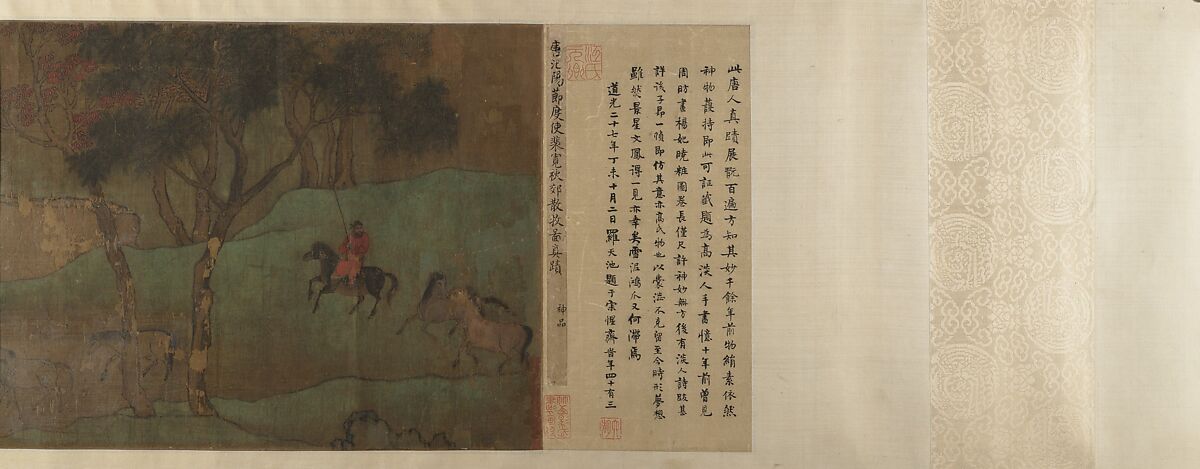 此唐人真蹟展翫百遍方知其妙千餘年前物絹素依然
神物護持即此可証籤題為高淡人手書憶十年前曾見
周昉畫楊妃曉粧圖卷長僅尺許神妙無方後有淡人詩跋甚
詳後子昂一幀即仿其意亦高氏物也以囊澁不克留至今時形夢想
雖然景星文鳳得一見亦幸矣雪泥鴻爪又何滯焉
道光二十七年丁未十月二日羅天池題于常惺齋昔年四十有三
唐范陽節度使裴寬秋郊散牧圖真蹟
神品